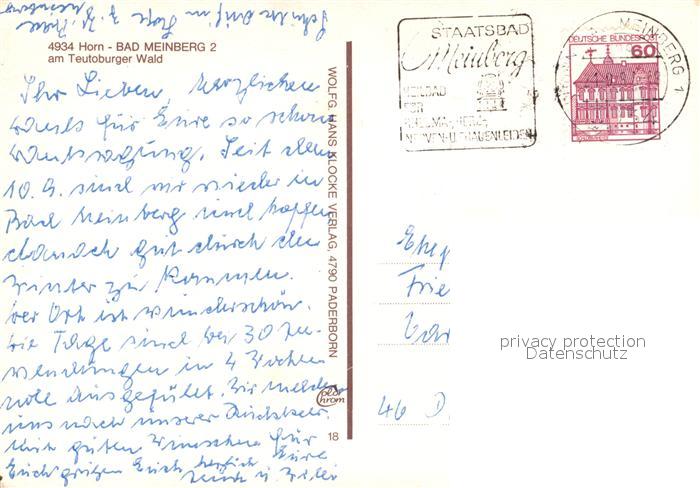 4934 Horn - BAD MEINBERG 2
am Teutoburger Wald
Ihr Lieben, herzlichen
Dank für Eure so schöne
Danksagung. Seit dem
10.9. sind wir wieder in
Bad Meinberg und hoffen
danach gut durch den
Winter zu kommen.
Der Ort ist wunderschön.
Die Tage sind bei 30 An-
wendungen in 4 Wochen
voll ausgefüllt. Wir melden
uns nach unserer Rückkehr.
Mit guten Wünschen für
Euch grüßen Euch herzlich Eure
WOLFG. HANS KLOCKE VERLAG, 4790 PADERBORN
Color
Chrom
18
STAATSBAD
Meinberg
HEILBAD
FÜR
RHEUMA, HERZ,
NERVEN-U. FRAUENLEIDEN
DEUTSCHE BUNDESPOST
60
MEINBERG 1
Ehep
Frie
46 D
privacy protection
Datenschutz